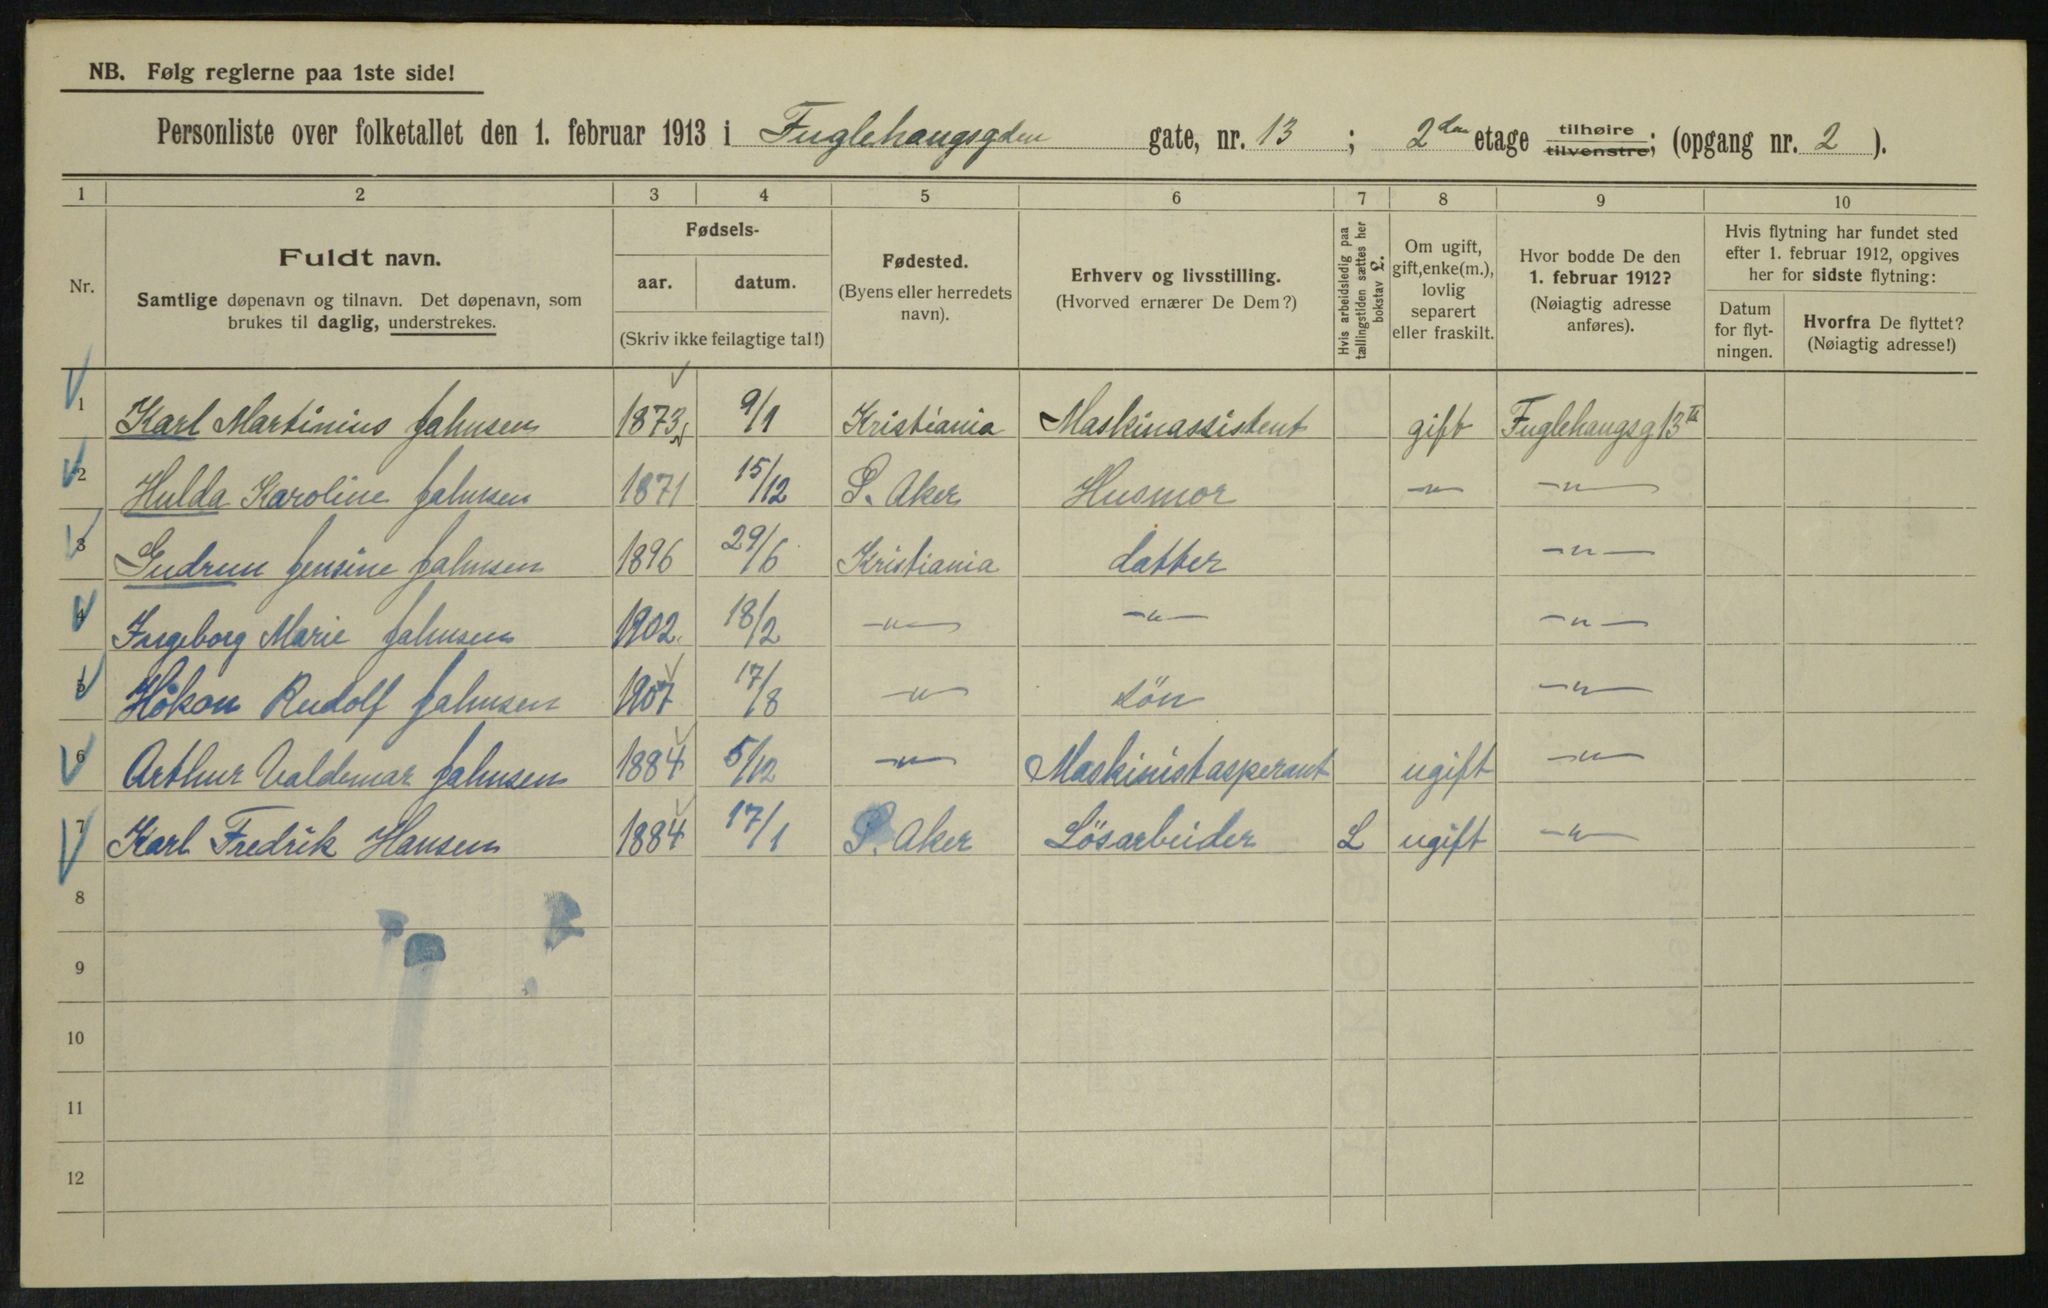 NB. Følg reglerne paa 1ste side!
Personliste over folketallet den 1. februar 1913 i Fuglehaugsgden gate, nr. 13 ; 2den etage tilhøire tilvenstre; (opgang nr. 2 ).
1 2 3 4 5 6 7 8 9 10
Nr.
Fuldt navn.
Samtlige døpenavn og tilnavn. Det døpenavn, som
brukes til daglig, understrekes.
Fødsels-
aar. datum.
(Skriv ikke feilagtige tal!)
Fødested.
(Byens eller herredets
navn).
Erhverv og livsstilling.
(Hvorved ernærer De Dem?)
Hvis arbeidsledig paa
tællingstiden sættes her
bokstav L.
Om ugift,
gift, enke(m.),
lovlig
separert
eller fraskilt.
Hvor bodde De den
1. februar 1912?
(Nøiagtig adresse
anføres).
Hvis flytning har fundet sted
efter 1. februar 1912, opgives
her for sidste flytning:
Datum
for flyt-
ningen.
Hvorfra De flyttet?
(Nøiagtig adresse!)
1 Karl Martinius Jahnsen 1873 9/1 Kristiania Maskinassistent gift Fuglehaugsg 13 II
2 Hulda Karoline Jahnsen 1871 15/12 S. Aker Husmor —"— —"—
3 Gudrun Jensine Jahnsen 1896 29/6 Kristiania datter —"—
4 Ingeborg Marie Jahnsen 1902 18/2 —"— —"— —"—
5 Håkon Rudolf Jahnsen 1907 17/8 —"— sön —"—
6 Arthur Valdemar Jahnsen 1884 5/12 —"— Maskinistasperant ugift —"—
7 Karl Fredrik Hansen 1884 17/1 S. Aker Lösarbeider L ugift —"—
8
9
10
11
12